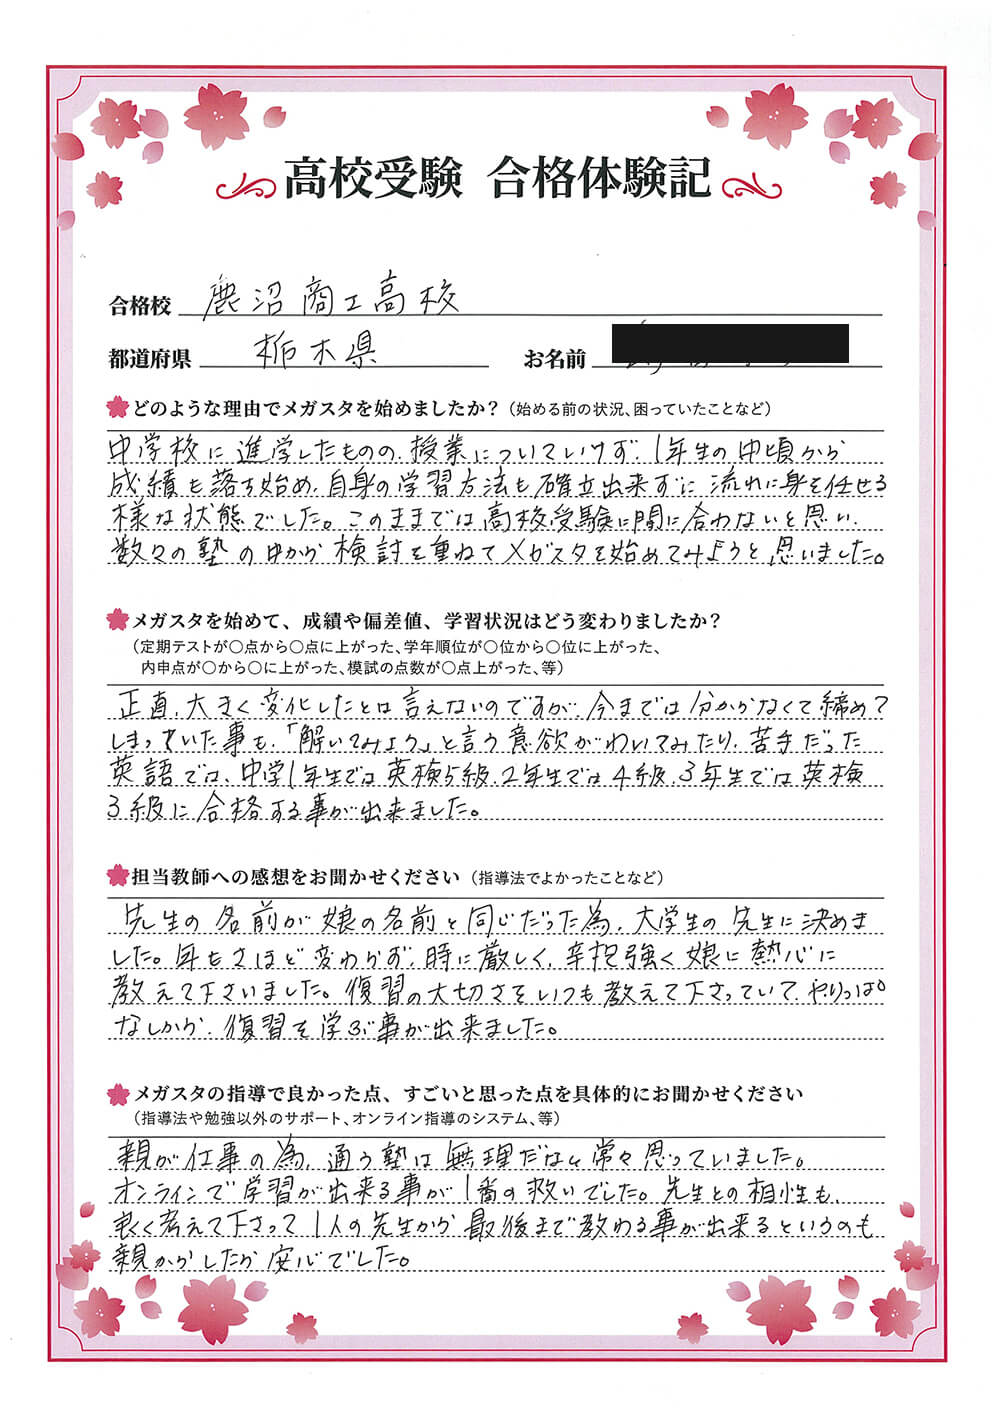 高校受験 合格体験記
合格校 鹿沼商工高校
都道府県 栃木県 お名前
どのような理由でメガスタを始めましたか？（始める前の状況、困っていたことなど）
中学校に進学したものの、授業についていけず、1年生の中頃から
成績も落ち始め、自身の学習方法も確立出来ずに流れに身を任せる
様な状態でした。このままでは高校受験に間に合わないと思い、
数々の塾の中から検討を重ねてメガスタを始めてみようと思いました。
メガスタを始めて、成績や偏差値、学習状況はどう変わりましたか？
（定期テストが〇点から〇点に上がった、学年順位が〇位から〇位に上がった、
内申点が〇から〇に上がった、模試の点数が〇点上がった、等）
正直、大きく変化したとは言えないのですが、今までは分からなくて締めて
しまっていた事も、「解いてみよう」と言う意欲がわいてみたり、苦手だった
英語では、中学1年生では英検5級、2年生では4級、3年生では英検
3級に合格する事が出来ました。
担当教師への感想をお聞かせください（指導法でよかったことなど）
先生の名前が娘の名前と同じだった為、大学生の先生に決めま
した。年もさほど変わらず、時に厳しく、辛抱強く娘に熱心に
教えて下さいました。復習の大切さをいつも教えて下さっていて、やりっぱ
なしから、復習を学ぶ事が出来ました。
メガスタの指導で良かった点、すごいと思った点を具体的にお聞かせください
（指導法や勉強以外のサポート、オンライン指導のシステム、等）
親が仕事の為、通う塾は無理だなぁと常々思っていました。
オンラインで学習が出来る事が1番の救いでした。先生との相性も、
良く考えて下さって1人の先生から最後まで教わる事が出来るというのも
親からしたら安心でした。